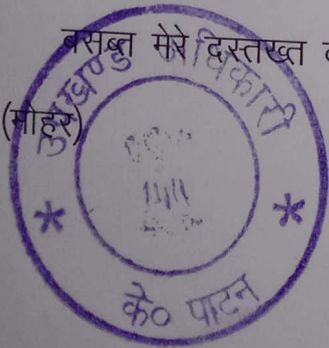 बसब्त मेरे दस्तख्त व
(मोहर)
उपखण्ड अधिकारी
के० पाटन